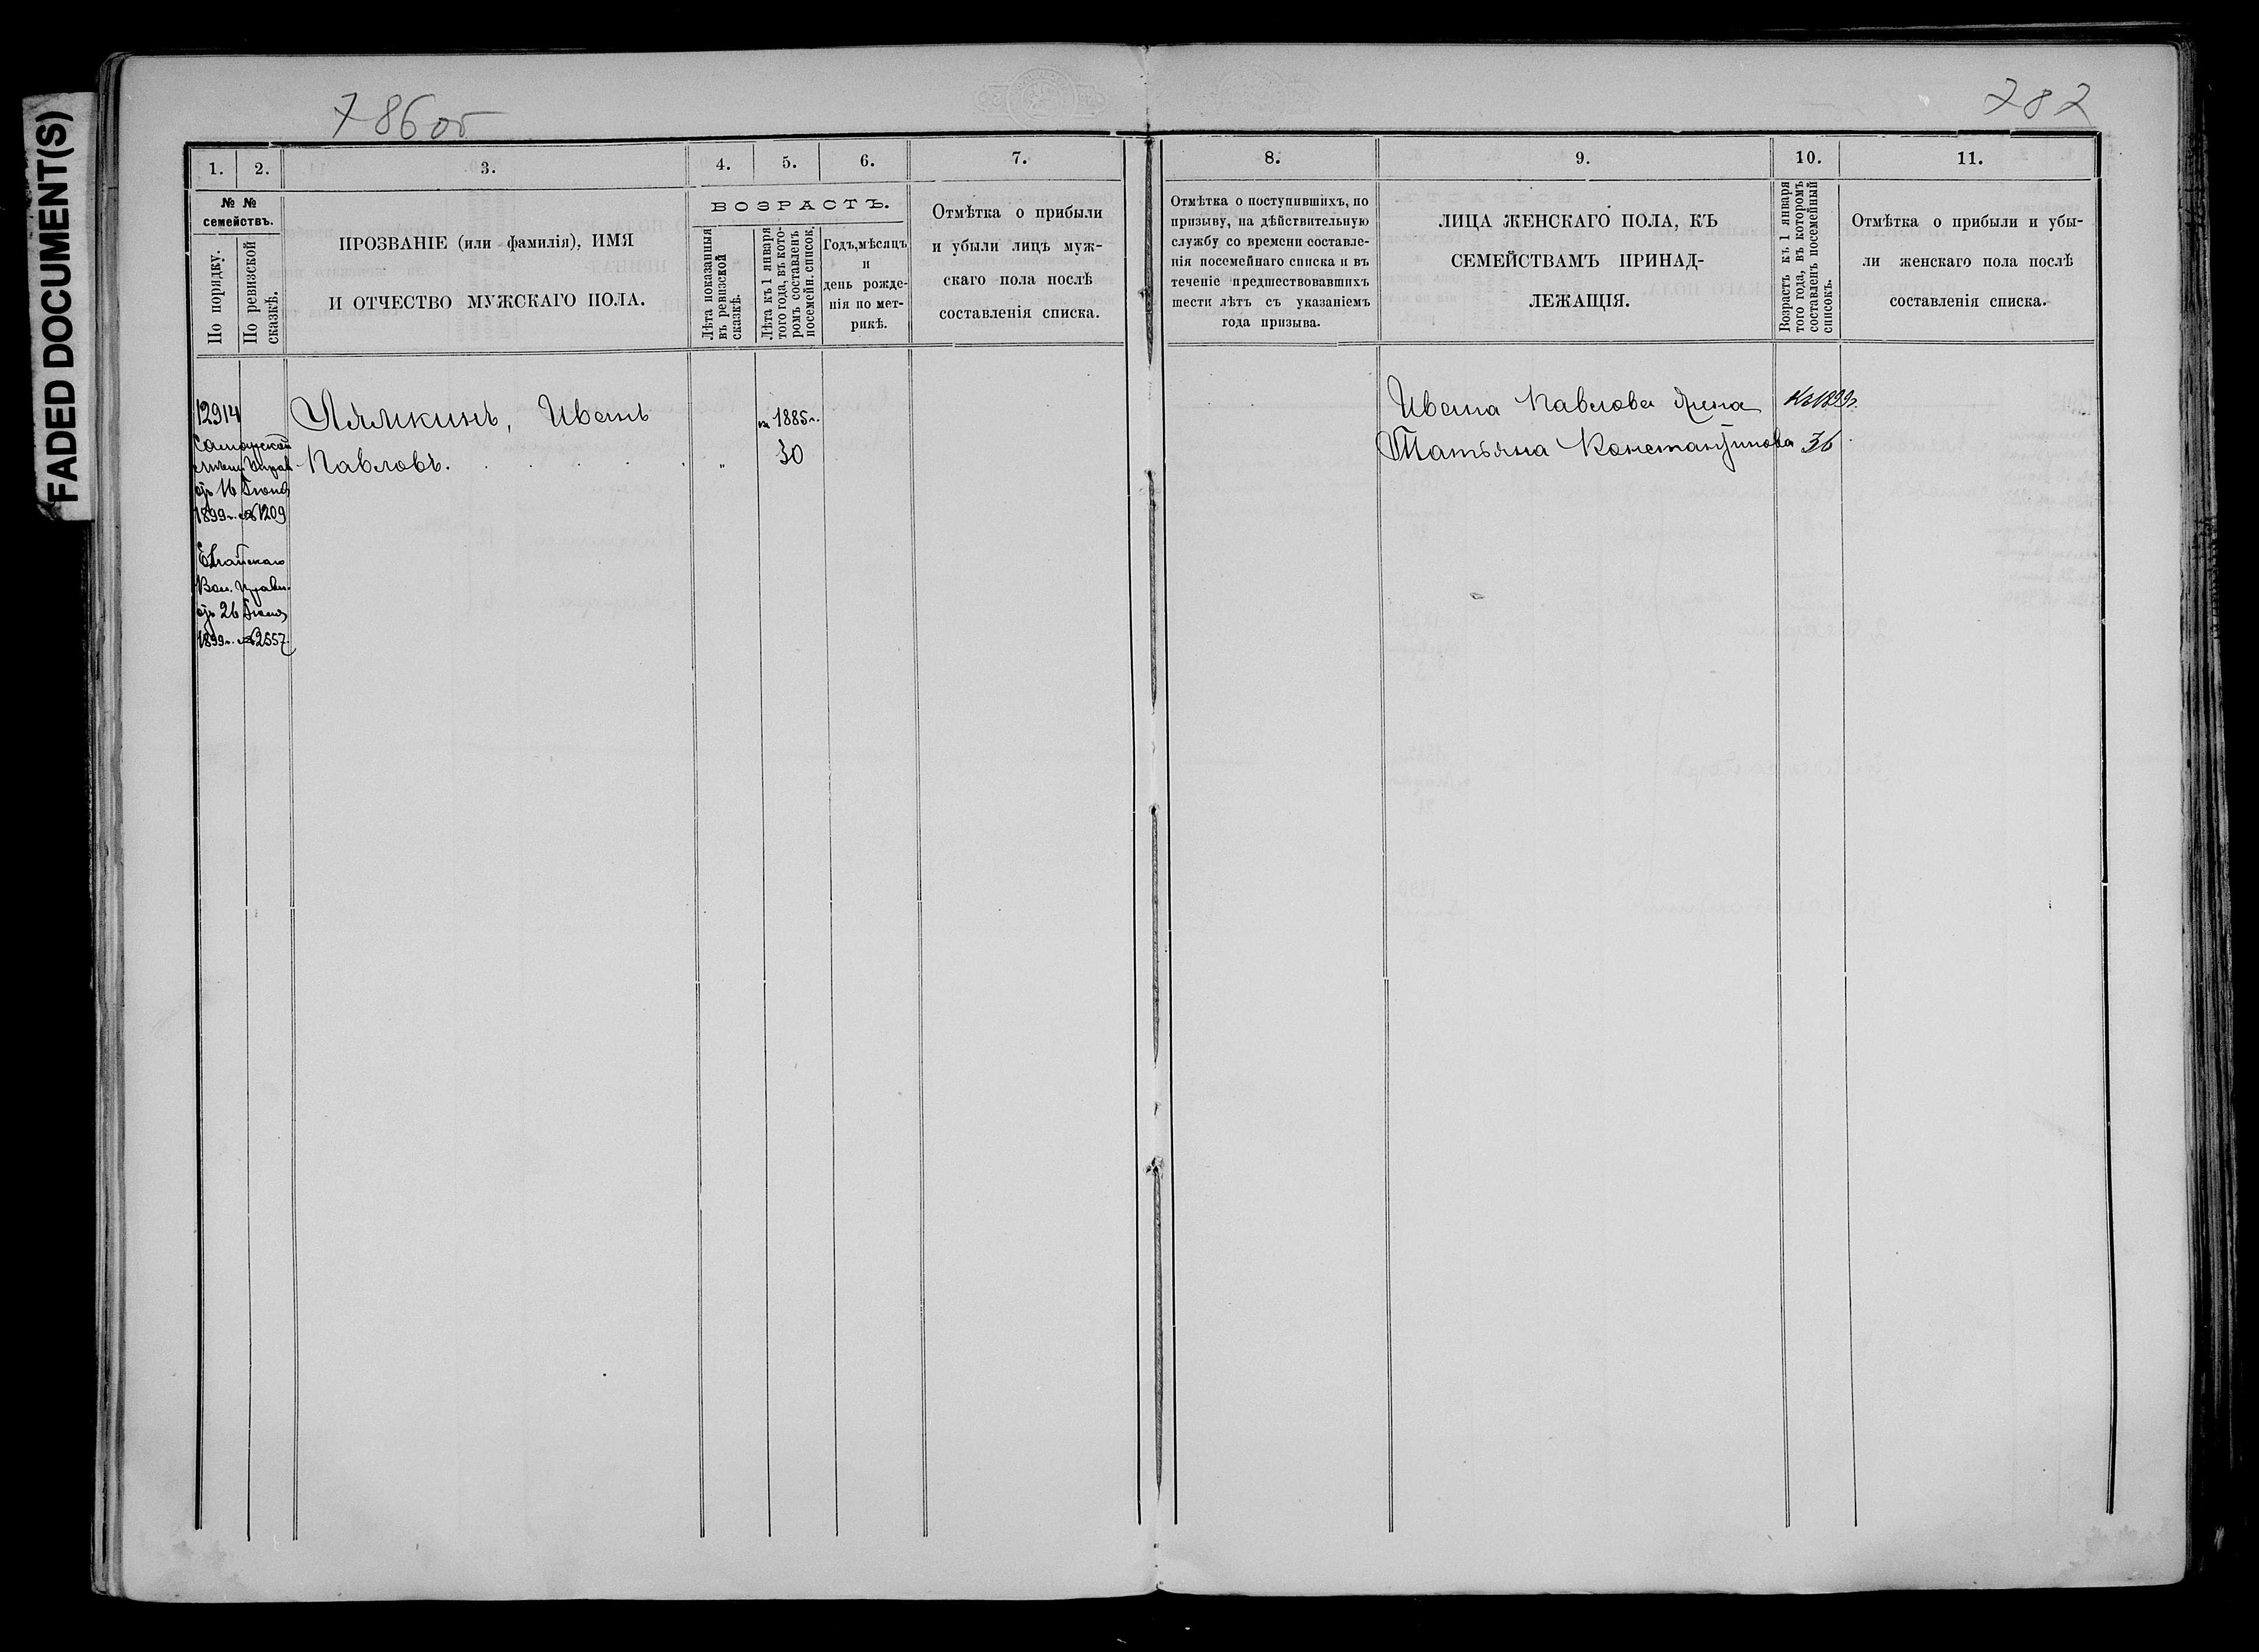 FADED DOCUMENT(S)
786 об
787
1.
2.
3.
4.
5.
6.
7.
8.
9.
10.
11.
№ №
семействъ.
По порядку.
По ревизской
сказкѣ.
ПРОЗВАНІЕ (или фамилія), ИМЯ
И ОТЧЕСТВО МУЖСКАГО ПОЛА.
ВОЗРАСТЪ.
Лѣта показанныя
въ ревизской
сказкѣ.
Лѣта къ 1 января
того года, въ кото-
ромъ составленъ
посемейн. список.
Годъ, мѣсяцъ
и
день рожде-
нія по мет-
рикѣ.
Отмѣтка о прибыли
и убыли лицъ муж-
скаго пола послѣ
составленія списка.
Отмѣтка о поступившихъ, по
призыву, на дѣйствительную
службу со времени составле-
нія посемейнаго списка и въ
теченіе предшествовавшихъ
шести лѣтъ съ указаніемъ
года призыва.
ЛИЦА ЖЕНСКАГО ПОЛА, КЪ
СЕМЕЙСТВАМЪ ПРИНАД-
ЛЕЖАЩІЯ.
Возрастъ къ 1 января
того года, въ которомъ
составленъ посемейный
списокъ.
Отмѣтка о прибыли и убы-
ли женскаго пола послѣ
составленія списка.
12914
Самарской
мѣщ. Управ.
отъ 16 Іюня
1899 г. №1209
Елгайскаго
Вол. Правл.
отъ 26 Іюля
1899 г. №2557.
Лямкинъ, Иванъ
Павловъ.
на 1885 г.
"
30
Ивана Павлова жена
Татьяна Константинова
Къ 1899 г.
36